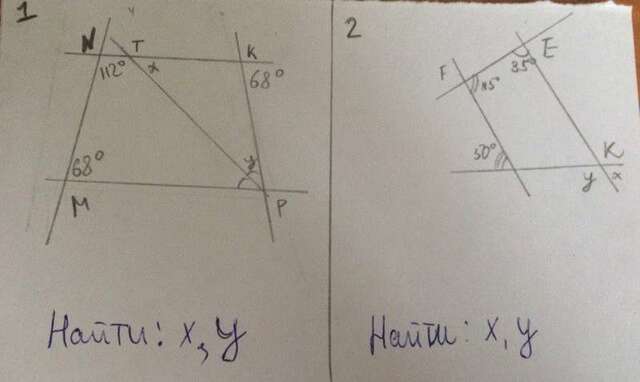 1
N T K
112° x 68°
68° y
M P
Найти: x, y
2
E
F 35°
115°
50°
K
y x
Найти: x, y